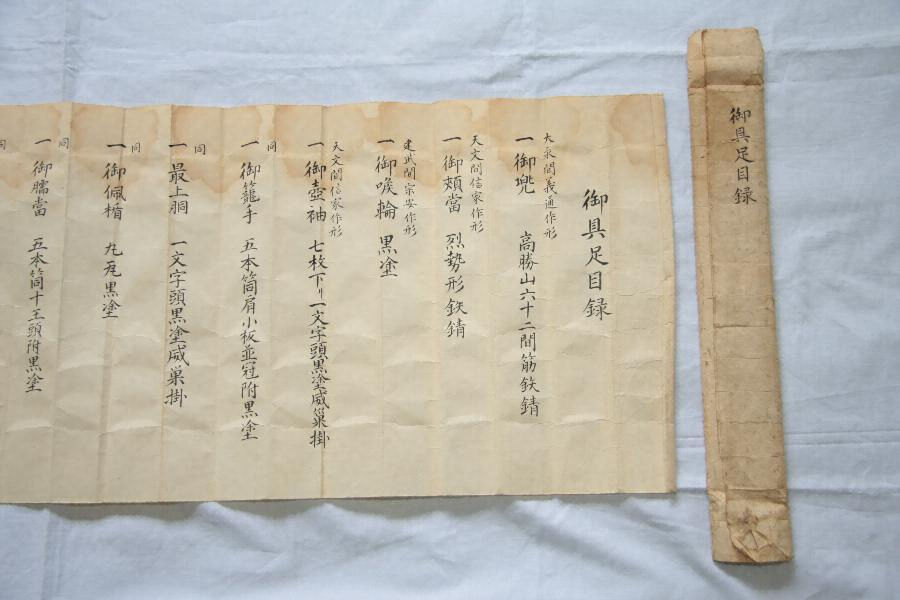 御具足目録
御具足目録
大永間義通作形
一 御兜 高勝山六十二間筋鉄錆
天文間信家作形
一 御頬當 烈勢形鉄錆
建武間宗安作形
一 御喉輪 黒塗
天文間信家作形
一 御壺袖 七枚下リ一文字頭黒塗威巣掛
同
一 御籠手 五本筒肩小板並冠附黒塗
同
一 最上胴 一文字頭黒塗威巣掛
同
一 御佩楯 黒塗
同
一 御臑當 五本筒十王頭附黒塗